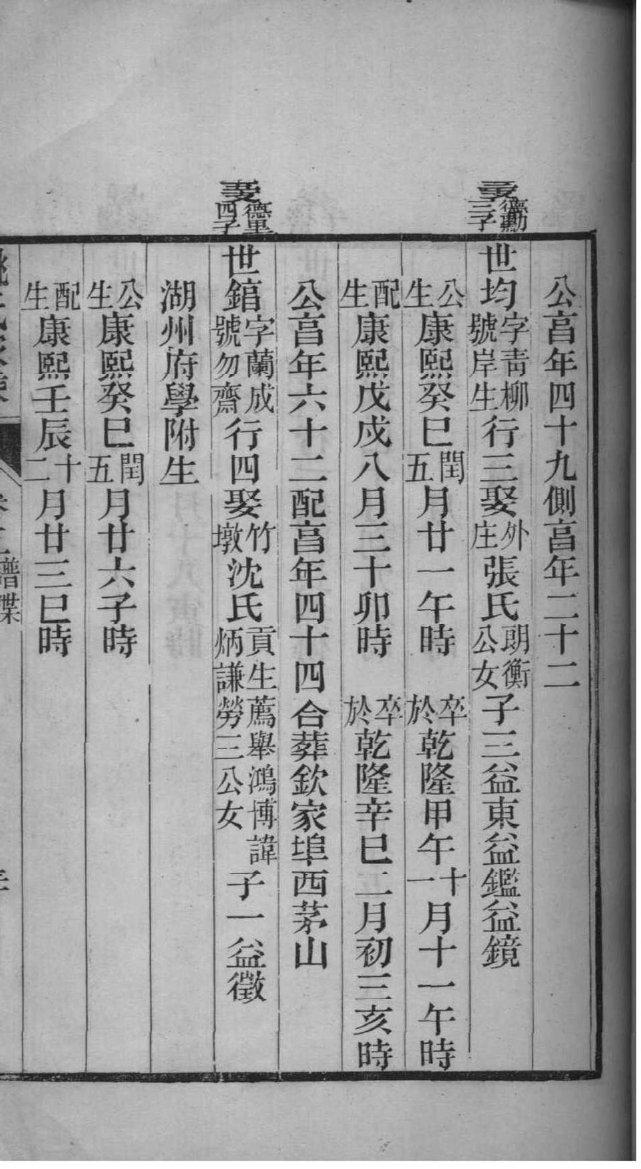 公亯年四十九側亯年二十二
德勳三子
世均字青柳號岸生行三娶外庄張氏朝衡公女子三益東益鑑益鏡
公生康熙癸巳閏五月廿一午時卒於乾隆甲午十一月十一午時
配生康熙戊戌八月三十卯時卒於乾隆辛巳二月初三亥時
公亯年六十二配亯年四十四合葬欽家埠西茅山
四子
世錧字蘭成號勿齋行四娶竹墩沈氏貢生薦舉鴻博諱炳謙勞三公女子一益徵
湖州府學附生
公生康熙癸巳閏五月廿六子時
配生康熙壬辰十二月廿三巳時
譜牒